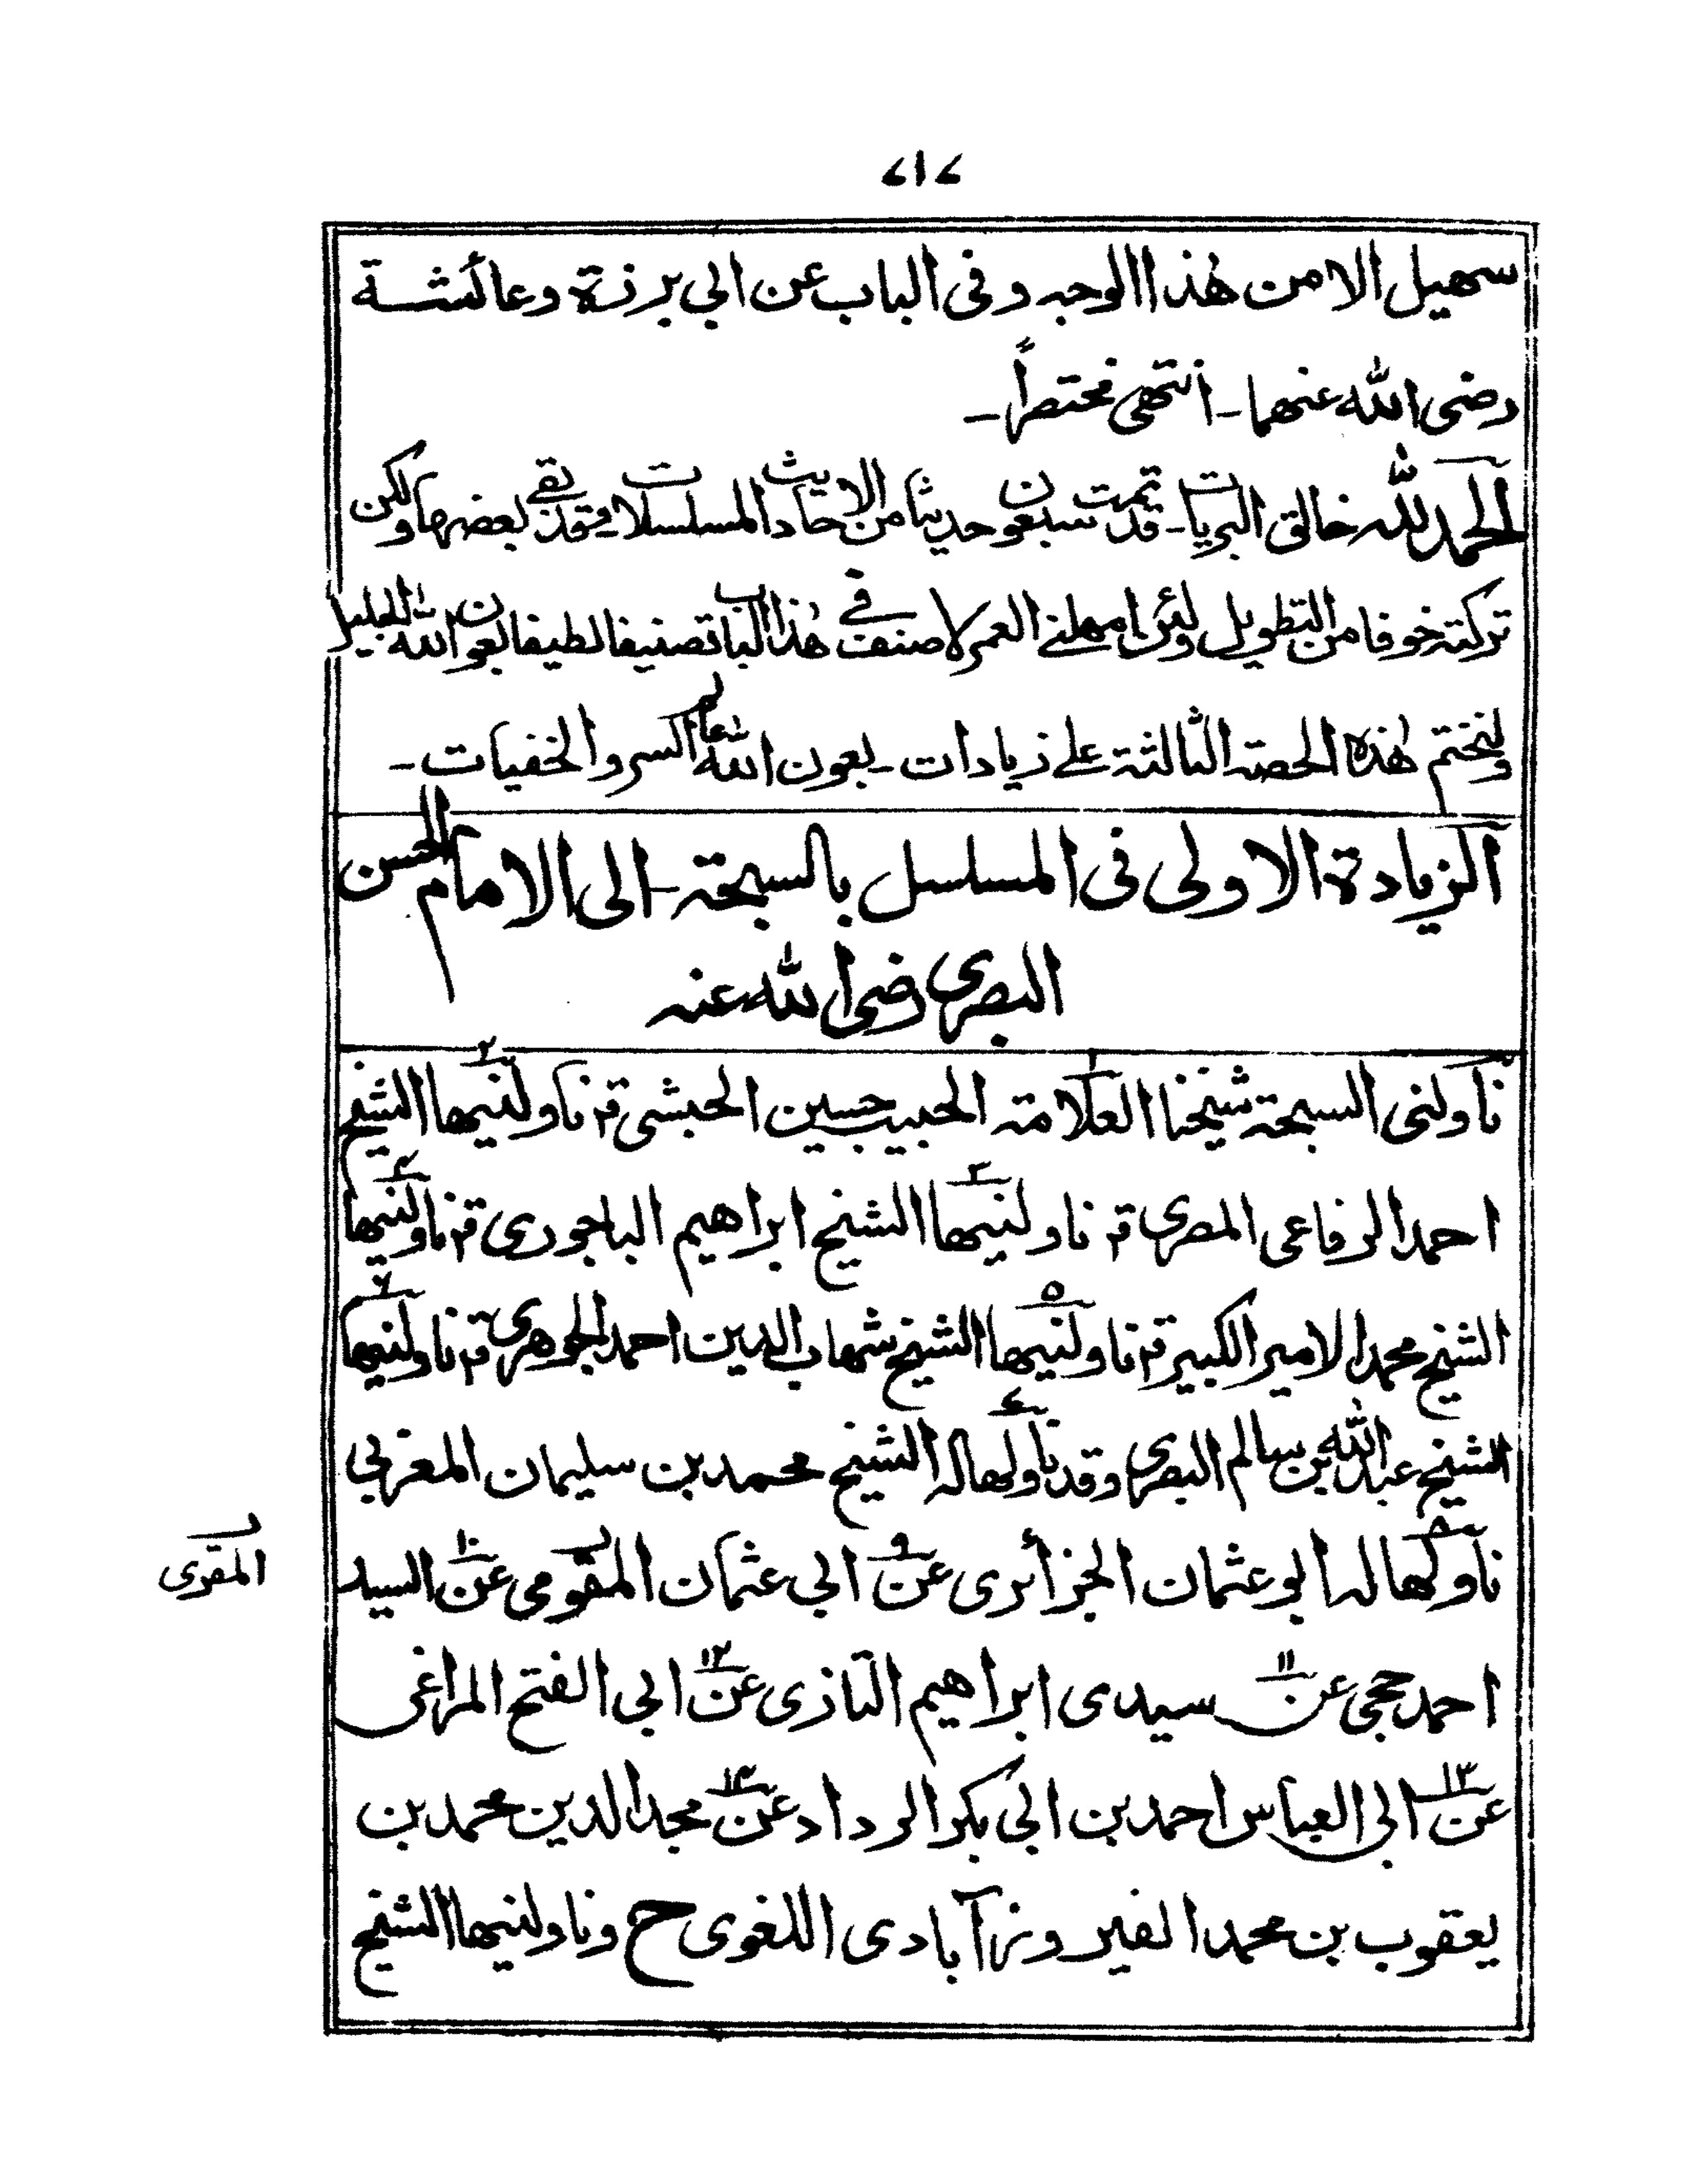 ٧١٧
سهيل الا من هٰذا الوجه وفى الباب عن ابي برزة وعائشة
رضى الله عنهما ـ انتهى مختصراً ـ
الحمد لله خالق البريات ـ قد تمت سبعون حديثا من الاحاديث المسلسلات ـ وقد بقى بعضها ولكن
تركته خوفا من التطويل ولئن امهلنے العمر لاصنف فے هٰذا الباب تصنيفا لطيفا بعون الله الجليل
ونختم هٰذه الحصة الثالثة علے زيادات ـ بعون الله عالم السر والخفيات ـ
الزيادة الاولى فى المسلسل بالسبحة ـ الى الامام الحسن
البصرى رضى الله عنه
ناولنى السبحة شيخنا العلامة ١ الحبيب حسين الحبشى قٓ ناولنيها ٢ الشيخ
احمد الرفاعى المصرى قٓ ناولنيها ٣ الشيخ ابراهيم الباجورى قٓ ناولنيها ٤
الشيخ محمد الامير الكبير قٓ ناولنيها ٥ الشيخ شهاب الدين احمد الجوهرى قٓ ناولنيها ٦
الشيخ عبد الله بن سالم البصرى وقد ناولها له ٧ الشيخ محمد بن سليمان المغربي
ناولها له ٨ ابو عثمان الجزائرى عن ٩ ابي عثمان المقومى عن ١٠ السيد
المقرى
احمد حجى عن ١١ سيدى ابراهيم التازى عن ١٢ ابي الفتح المراغى
عن ١٣ ابي العباس احمد بن ابي بكر الرداد عن ١٤ مجد الدين محمد بن
يعقوب بن محمد الفيروزآبادى اللغوى ح وناولنيها الشيخ